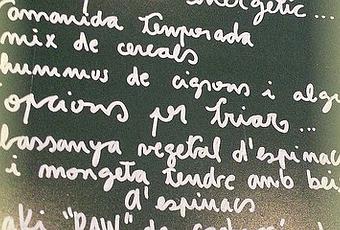 energètic...
amanida temporada
mix de cereals
hummus de cigrons i algu
opcions per triar...
lassanya vegetal d'espinac
i mongeta tendre amb bei
d'espinacs
aki "RAW" de